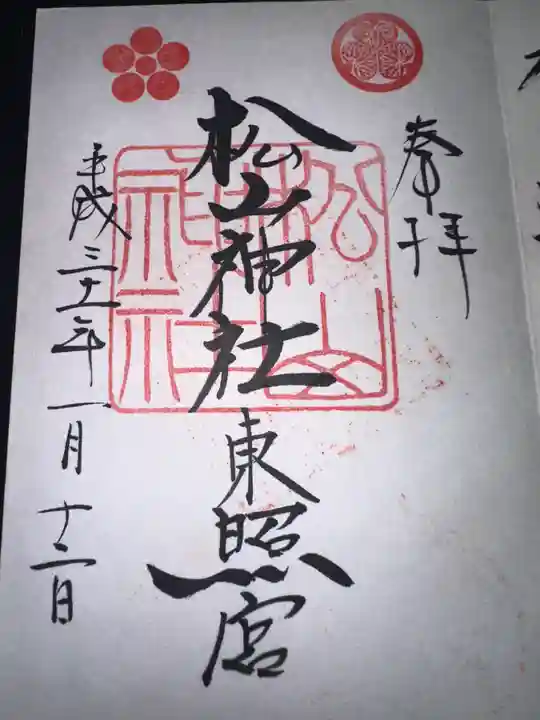 奉拝
松山神社東照宮
平成三十一年一月十二日